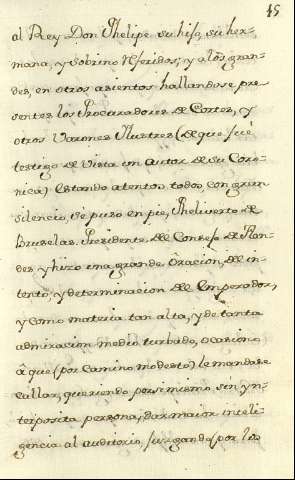 45
al Rey Don Phelipe su hijo, su her-
mana, y Sobrino referidos; y a los gran-
des, en otros asientos hallandose pre-
sentes los Procuradores de Cortes, y
otros Varones Ilustres (de que fue
testigo de Vista un autor de su Coro-
nica) Estando atentos todos con gran
silencio, se puso en pie, Pheliverto de
Bruselas Presidente del Consejo de Flan-
des y hizo una grande Oracion, del in-
tento, y determinacion del Emperador,
y como materia tan alta, y de tanta
admiracion medio turbado, ocasionó
à que (por camino modesto) le mandase
callar, queriendo por si mismo sin yn-
terposita persona, dar maior inteli-
gencia al auditorio, juzgando por los